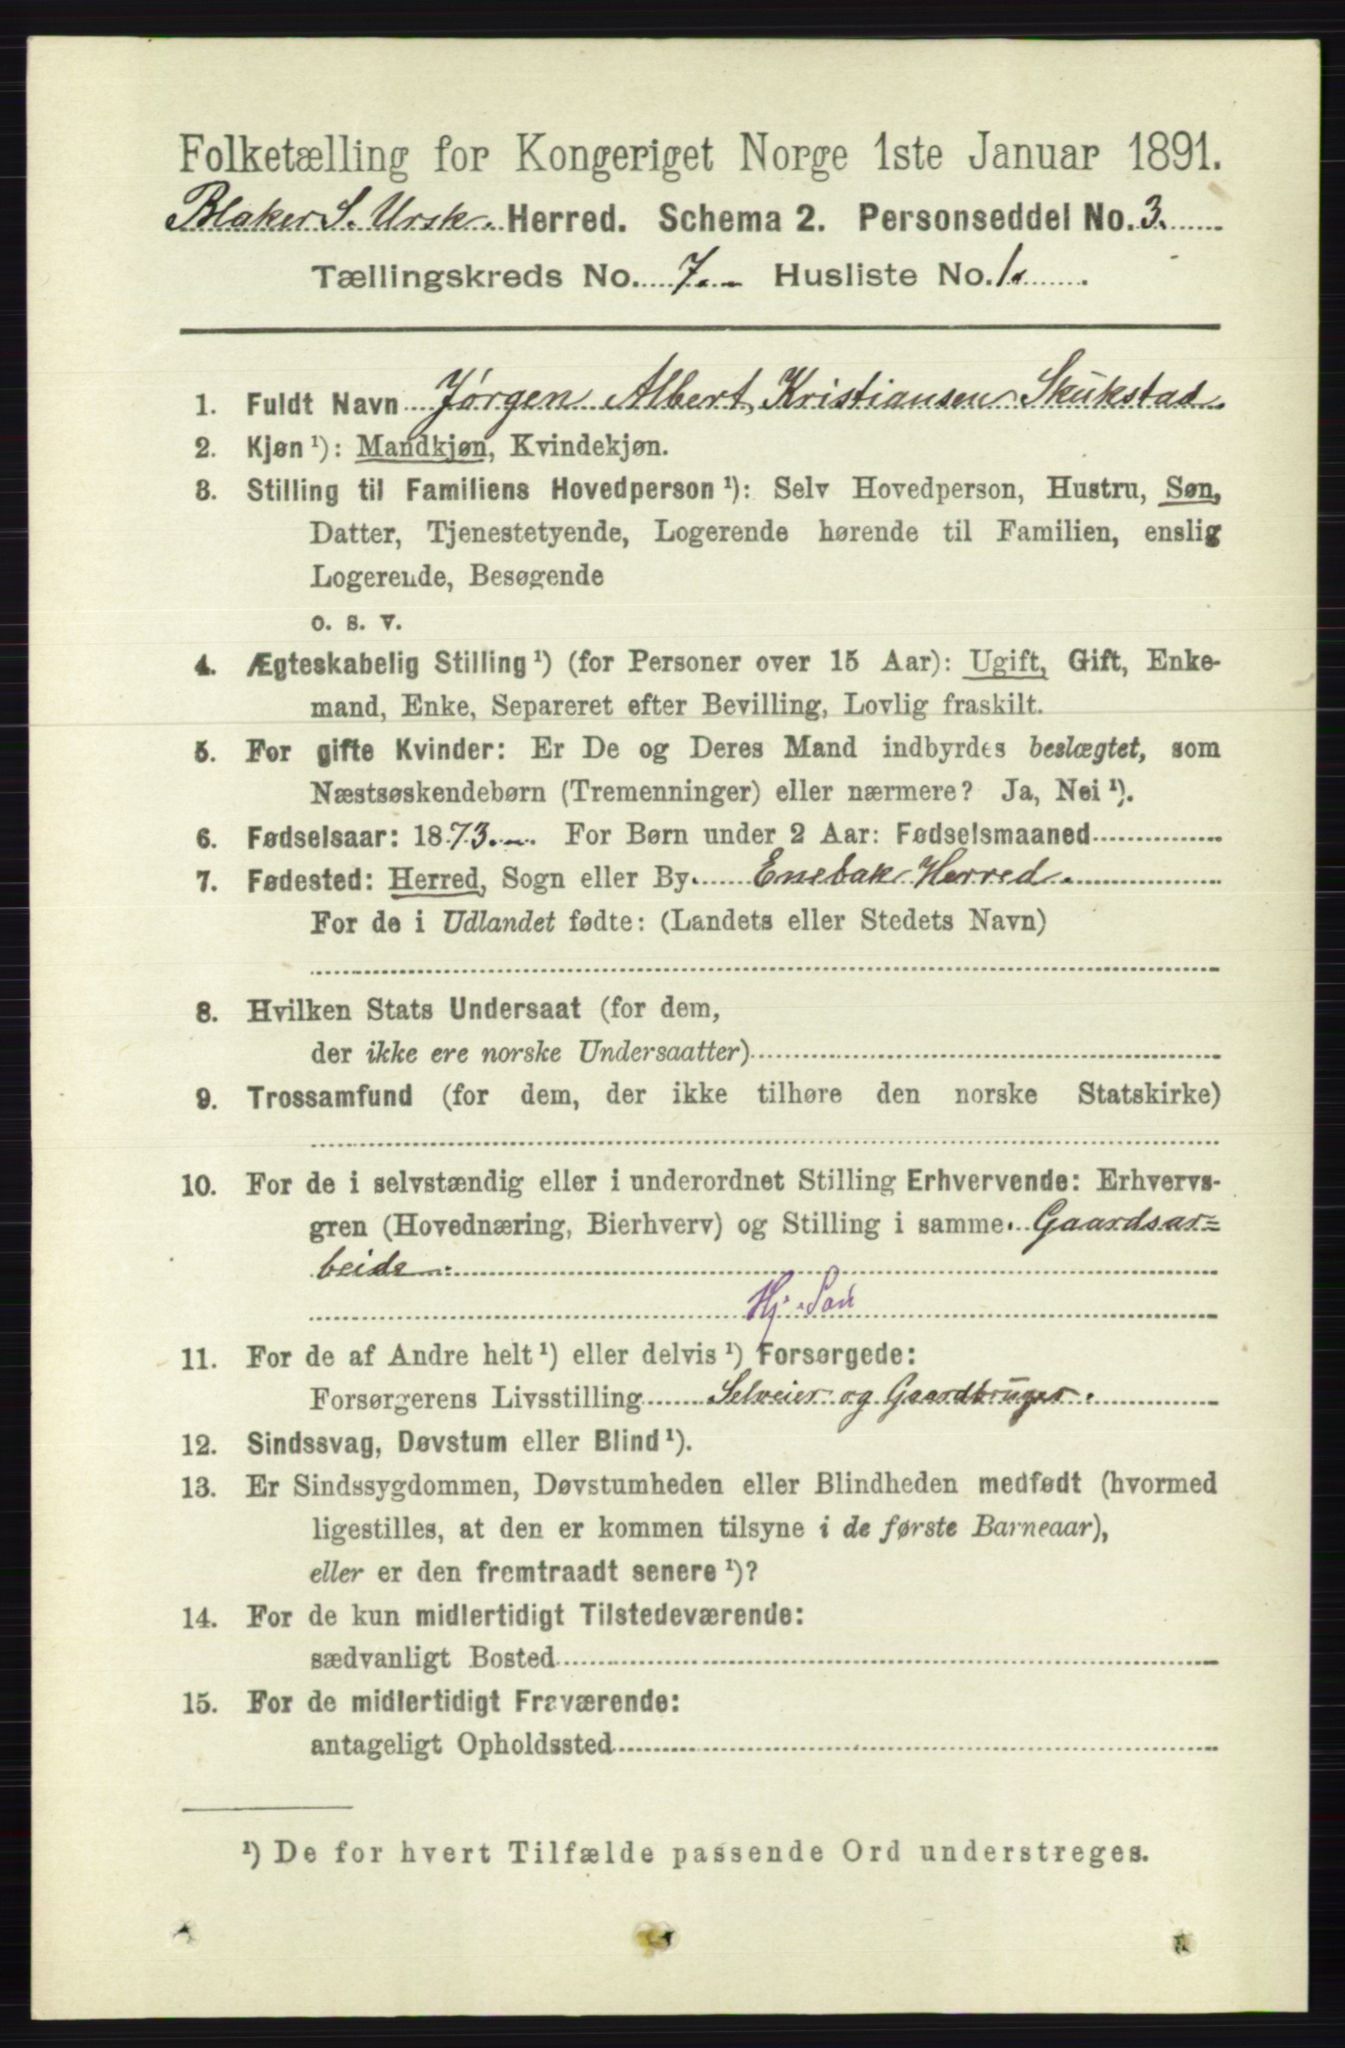 Folketælling for Kongeriget Norge 1ste Januar 1891.
Blaker S. Ursk. Herred. Schema 2. Personseddel No. 3.
Tællingskreds No. 7. Husliste No. 1.
1. Fuldt Navn Jørgen Albert Kristiansen Skukstad.
2. Kjøn¹): Mandkjøn, Kvindekjøn.
3. Stilling til Familiens Hovedperson¹): Selv Hovedperson, Hustru, Søn,
Datter, Tjenestetyende, Logerende hørende til Familien, enslig
Logerende, Besøgende
o. s. v.
4. Ægteskabelig Stilling¹) (for Personer over 15 Aar): Ugift, Gift, Enke-
mand, Enke, Separeret efter Bevilling, Lovlig fraskilt.
5. For gifte Kvinder: Er De og Deres Mand indbyrdes beslægtet, som
Næstsøskendebørn (Tremenninger) eller nærmere? Ja, Nei¹).
6. Fødselsaar: 1873. For Børn under 2 Aar: Fødselsmaaned
7. Fødested: Herred, Sogn eller By. Enebak Herred.
For de i Udlandet fødte: (Landets eller Stedets Navn)
8. Hvilken Stats Undersaat (for dem,
der ikke ere norske Undersaatter)
9. Trossamfund (for dem, der ikke tilhøre den norske Statskirke)
10. For de i selvstændig eller i underordnet Stilling Erhvervende: Erhvervs-
gren (Hovednæring, Bierhverv) og Stilling i samme. Gaardsar=
beide.
Hj. Søn
11. For de af Andre helt¹) eller delvis¹) Forsørgede:
Forsørgerens Livsstilling Selveier og Gaardbruger.
12. Sindssvag, Døvstum eller Blind¹).
13. Er Sindssygdommen, Døvstumheden eller Blindheden medfødt (hvormed
ligestilles, at den er kommen tilsyne i de første Barneaar),
eller er den fremtraadt senere¹)?
14. For de kun midlertidigt Tilstedeværende:
sædvanligt Bosted
15. For de midlertidigt Fraværende:
antageligt Opholdssted
¹) De for hvert Tilfælde passende Ord understreges.